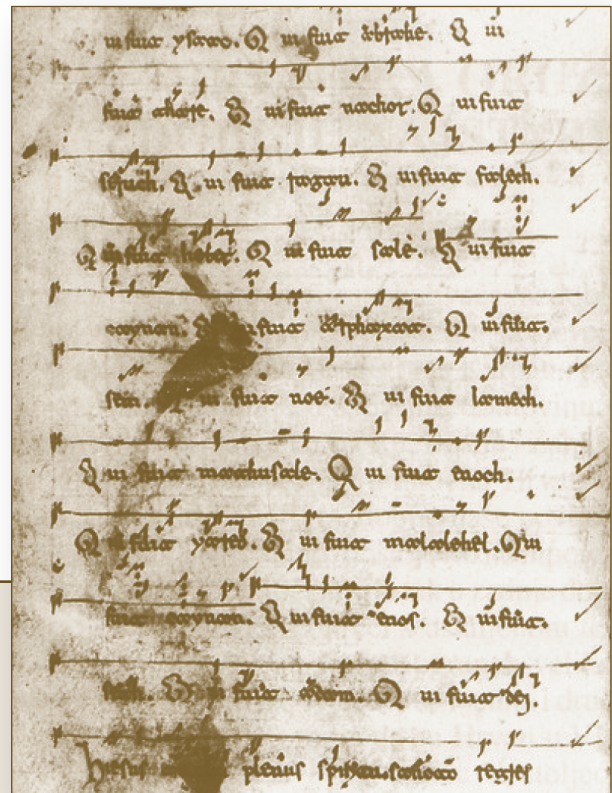 ui fuit ysaac. Qui fuit abrahe. Qui
fuit thare. Qui fuit nachor. Qui fuit
seruch. Qui fuit ragau. Qui fuit falech.
Qui fuit heber. Qui fuit sale. Qui fuit
caynan. Qui fuit arphaxat. Qui fuit.
sem. Qui fuit noe. Qui fuit lamech.
Qui fuit mathusale. Qui fuit enoch.
Qui fuit yared. Qui fuit malalehel. Qui
fuit caynan. Qui fuit enos. Qui fuit.
seth. Qui fuit adam. Qui fuit dei.
hiesus plenus regres